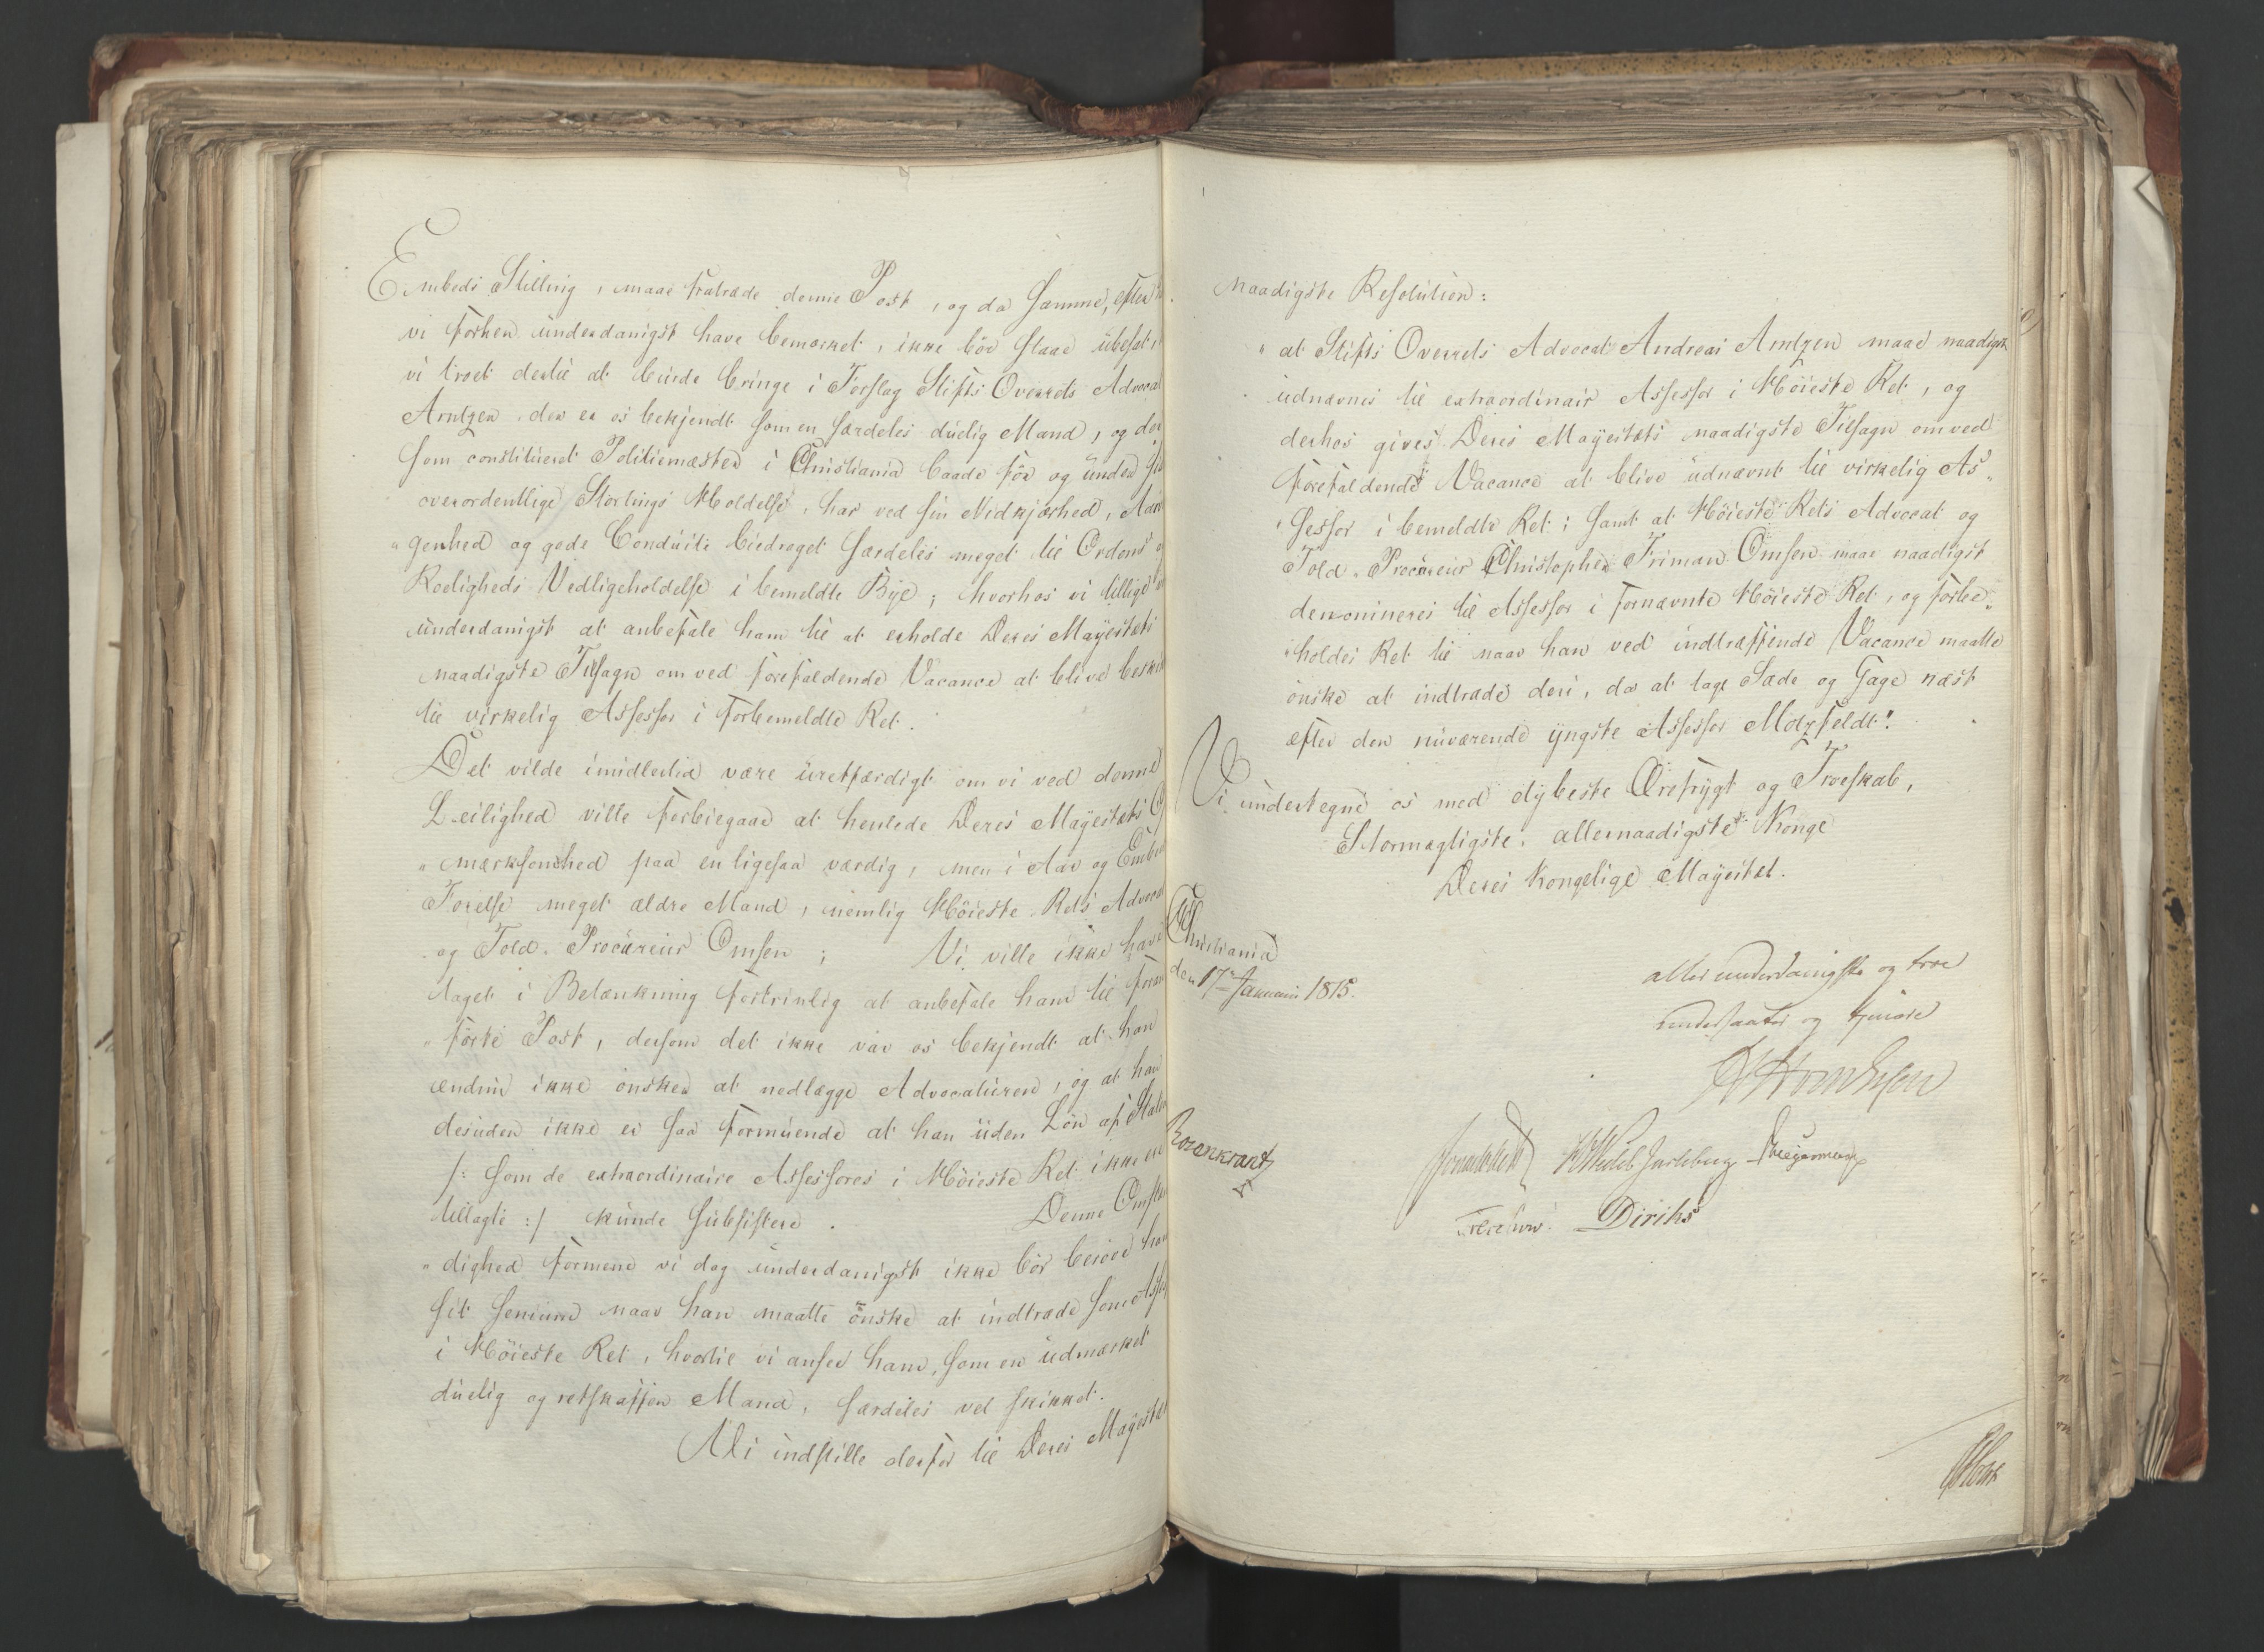 Embeds Stilling, maae fratræde denne Post, og da Samme, efter
vi forhen underdanigst have bemærket, ikke bör staae übesat,
vi troet dertil at burde bringe i Forslag Stifts Overrets Advocat
Arntzen, der er os bekjendt som en særdeles duelig Mand, og der
som constitueret Politiemester i Christiania baade för og under
overordentlige Storthings Holdelse, har ved sin Nidkjærhed,
„genhed og gode Conduite bidraget særdeles meget til Ordens
Roeligheds Vedligeholdelse i bemeldte Bye; hvorhos vi tillige
underdanigst at anbefale ham til at erholde Deres Mayestæts
naadigste Tilsagn om ved forefaldende Vacance at blive
til virkelig Assessor i forbemeldte Ret.
Det vilde imidlertid være uretfærdigt om vi ved denne
Leilighed ville forbiegaae at henlede Deres Mayestæts
„mærksomhed paa en ligesaa værdig, men i Aar og Embeds
Förelse meget ældre Mand, nemlig Höieste Rets Advocat
og Told-Procureur Omsen; Vi ville ikke have
taget i Betænkning fortrinlig at anbefale ham til
„förte Post, dersom det ikke var os bekjendt at han
endnu ikke önsker at nedlægge Advocaturen, og at han
desuden ikke er saa formuende at han uden Lön af Staten
/: som de extraordinaire Assessores i Höieste Ret ikke
tillagte :/ kunde subsistere. Denne Omstæn
„dighed formene vi dog underdanigst ikke bör beröve ham
sit Senium naar han maatte önske at indtræde som
i Höieste Ret, hvortil vi ansee ham, som en udmærket
duelig og retskaffen Mand, særdeles vel skikket.
Vi indstille derfor til Deres Mayestæts
naadigste Resolution:
„at Stifts Overrets Advocat Andreas Arntzen maae naadigst
udnævnes til extraordinair Assessor i Höieste Ret, og
derhos gives Deres Mayestæts naadigste Tilsagn om ved
forefaldende Vacance at blive udnævnt til virkelig As„
„sessor i bemeldte Ret; samt at Höieste Rets Advocat og
Told-Procureur Christopher Friman Omsen maae naadigst
denomineres til Assessor i fornævnte Höieste Ret, og forbe„
„holdes Ret til naar han ved indtræffende Vacance maatte
önske at indtræde deri, da at tage Sæde og Gage næst
efter den nuværende yngste Assessor Motzfeldt".
Vi undertegne os med dybeste Ærefrygt og Troeskab,
Stormægtigste, allernaadigste Konge
Deres Kongelige Mayestæt.
Christiania
den 17de Januarii 1815.
allerunderdanigste og troe
undersaatter og tjenere
Sommerhielm HWedel Jarlsberg Kriegermeyer
Rosenkrantz
Treschow. Diriks